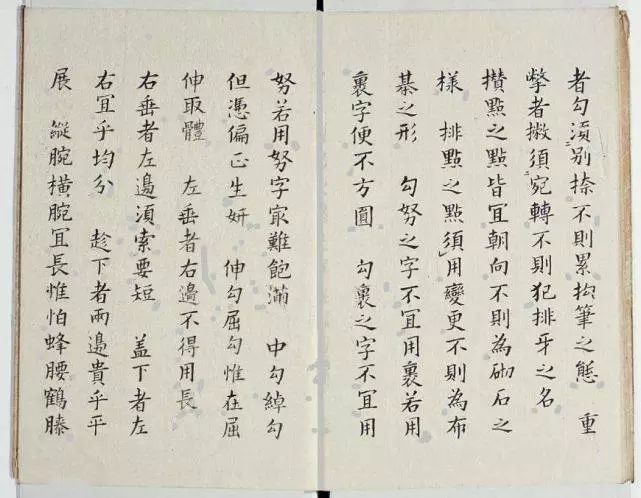 者勾須別捺不則累抝筆之態　重
撆者撇須宛轉不則犯排牙之名
攢點之點皆冝朝向不則為砌石之
樣　排點之點須用變更不則為布
棊之形　勾努之字不冝用裹若用
裹字便不方圓　勾裹之字不冝用
努若用努字冣難飽滿　中勾綽勾
但憑偏正生妍　伸勾屈勾惟在屈
伸取體　左垂者右邊不得用長
右垂者左邊須索要短　盖下者左
右冝乎均分　趁下者兩邉貴乎平
展　縱腕橫腕冝長惟怕蜂腰鶴膝